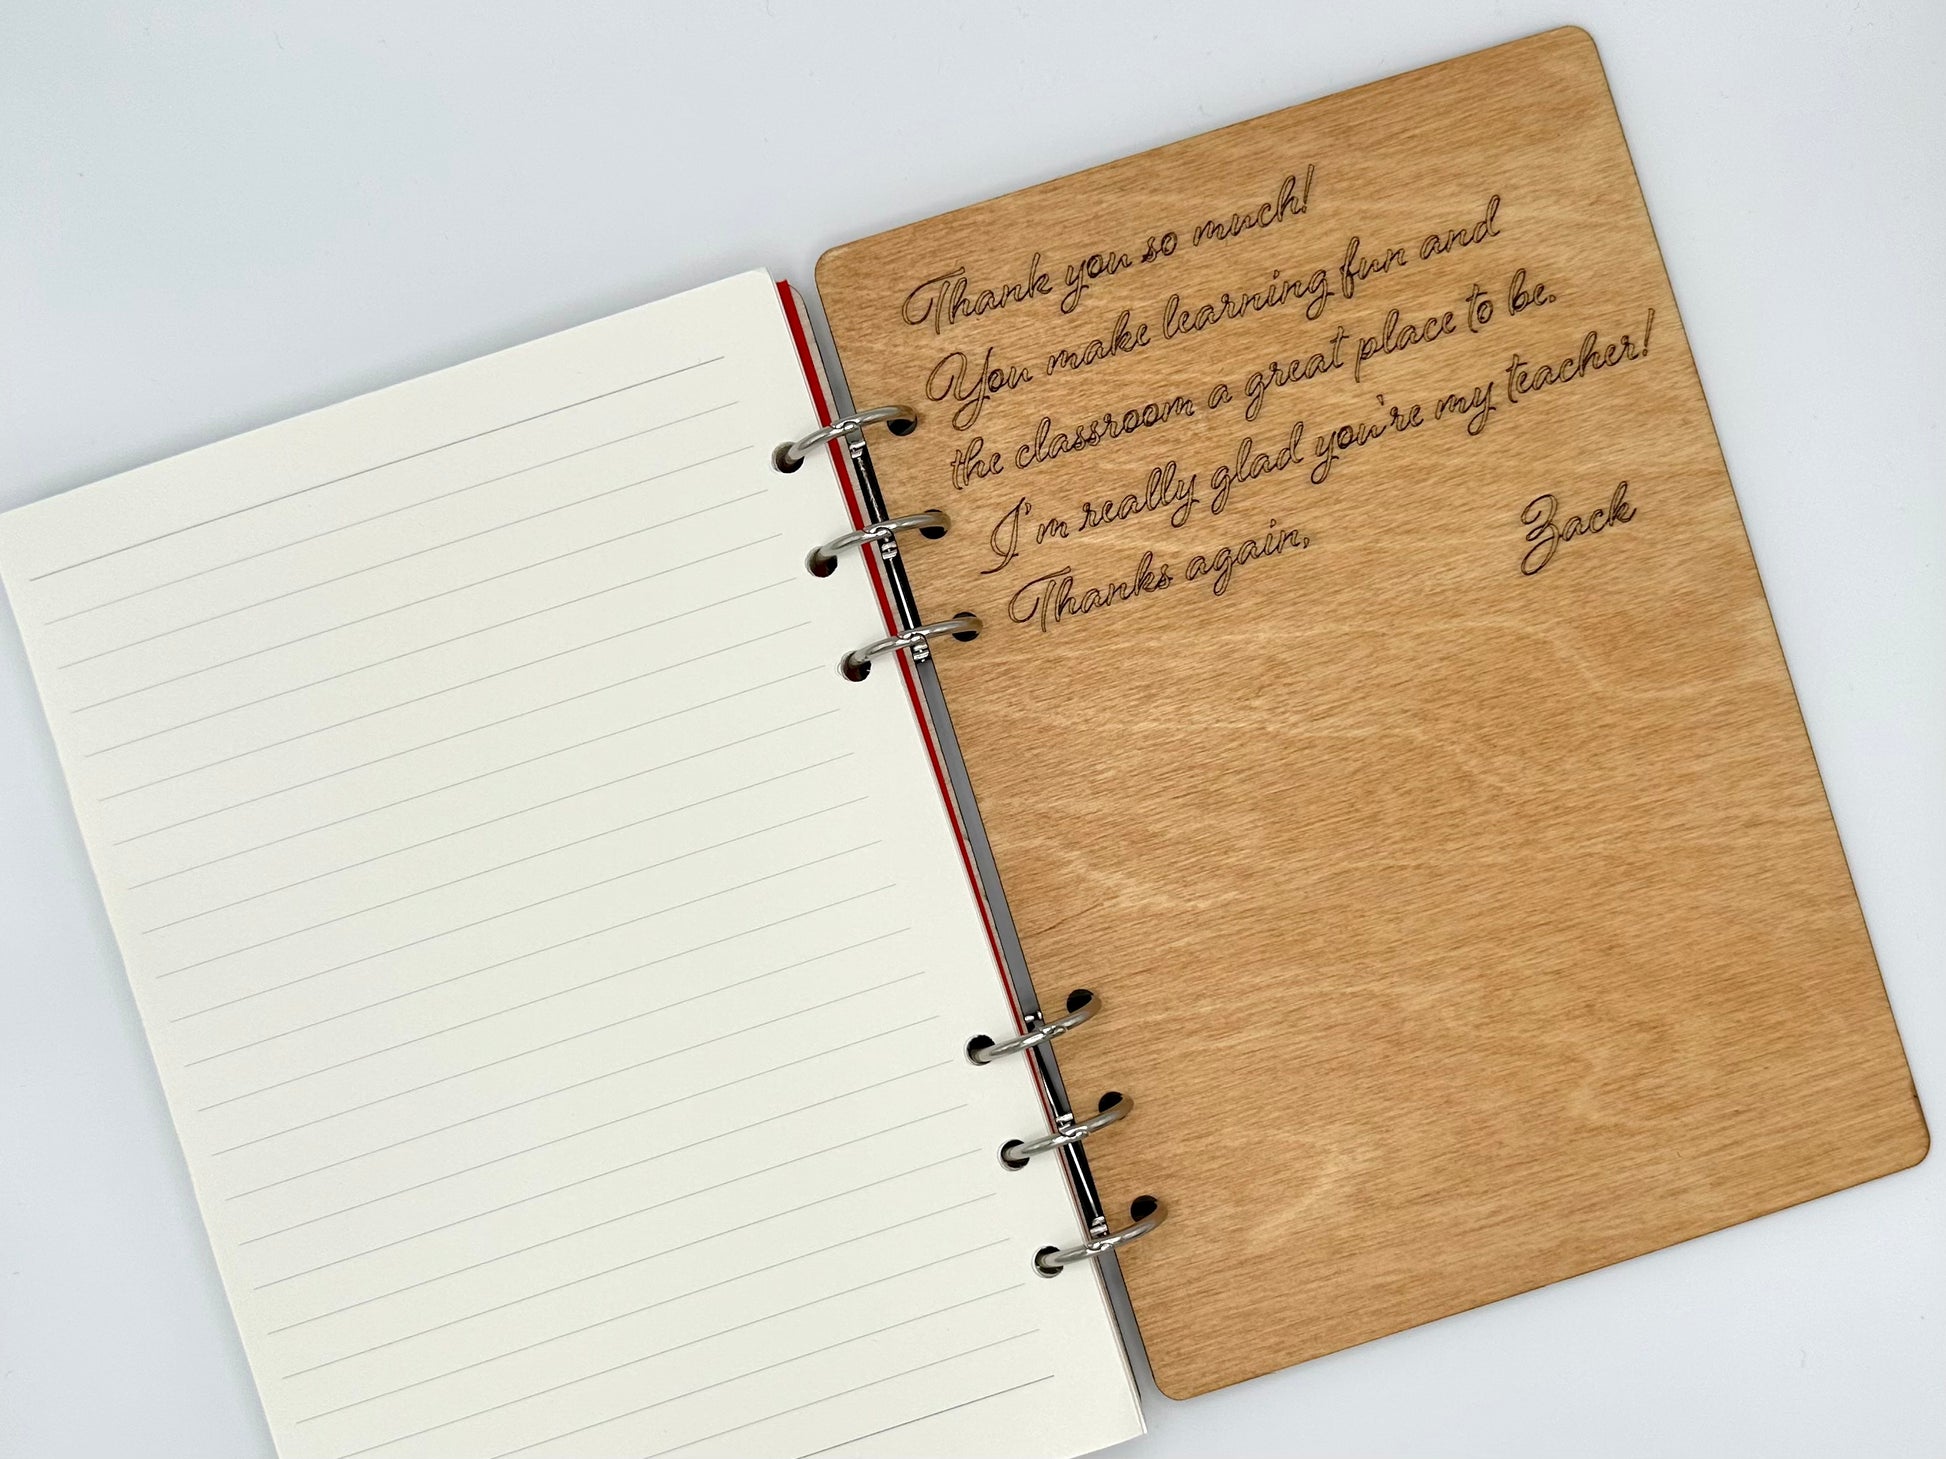 Thank you so much!
You make learning fun and
the classroom a great place to be.
I'm really glad you're my teacher!
Thanks again,
Zack